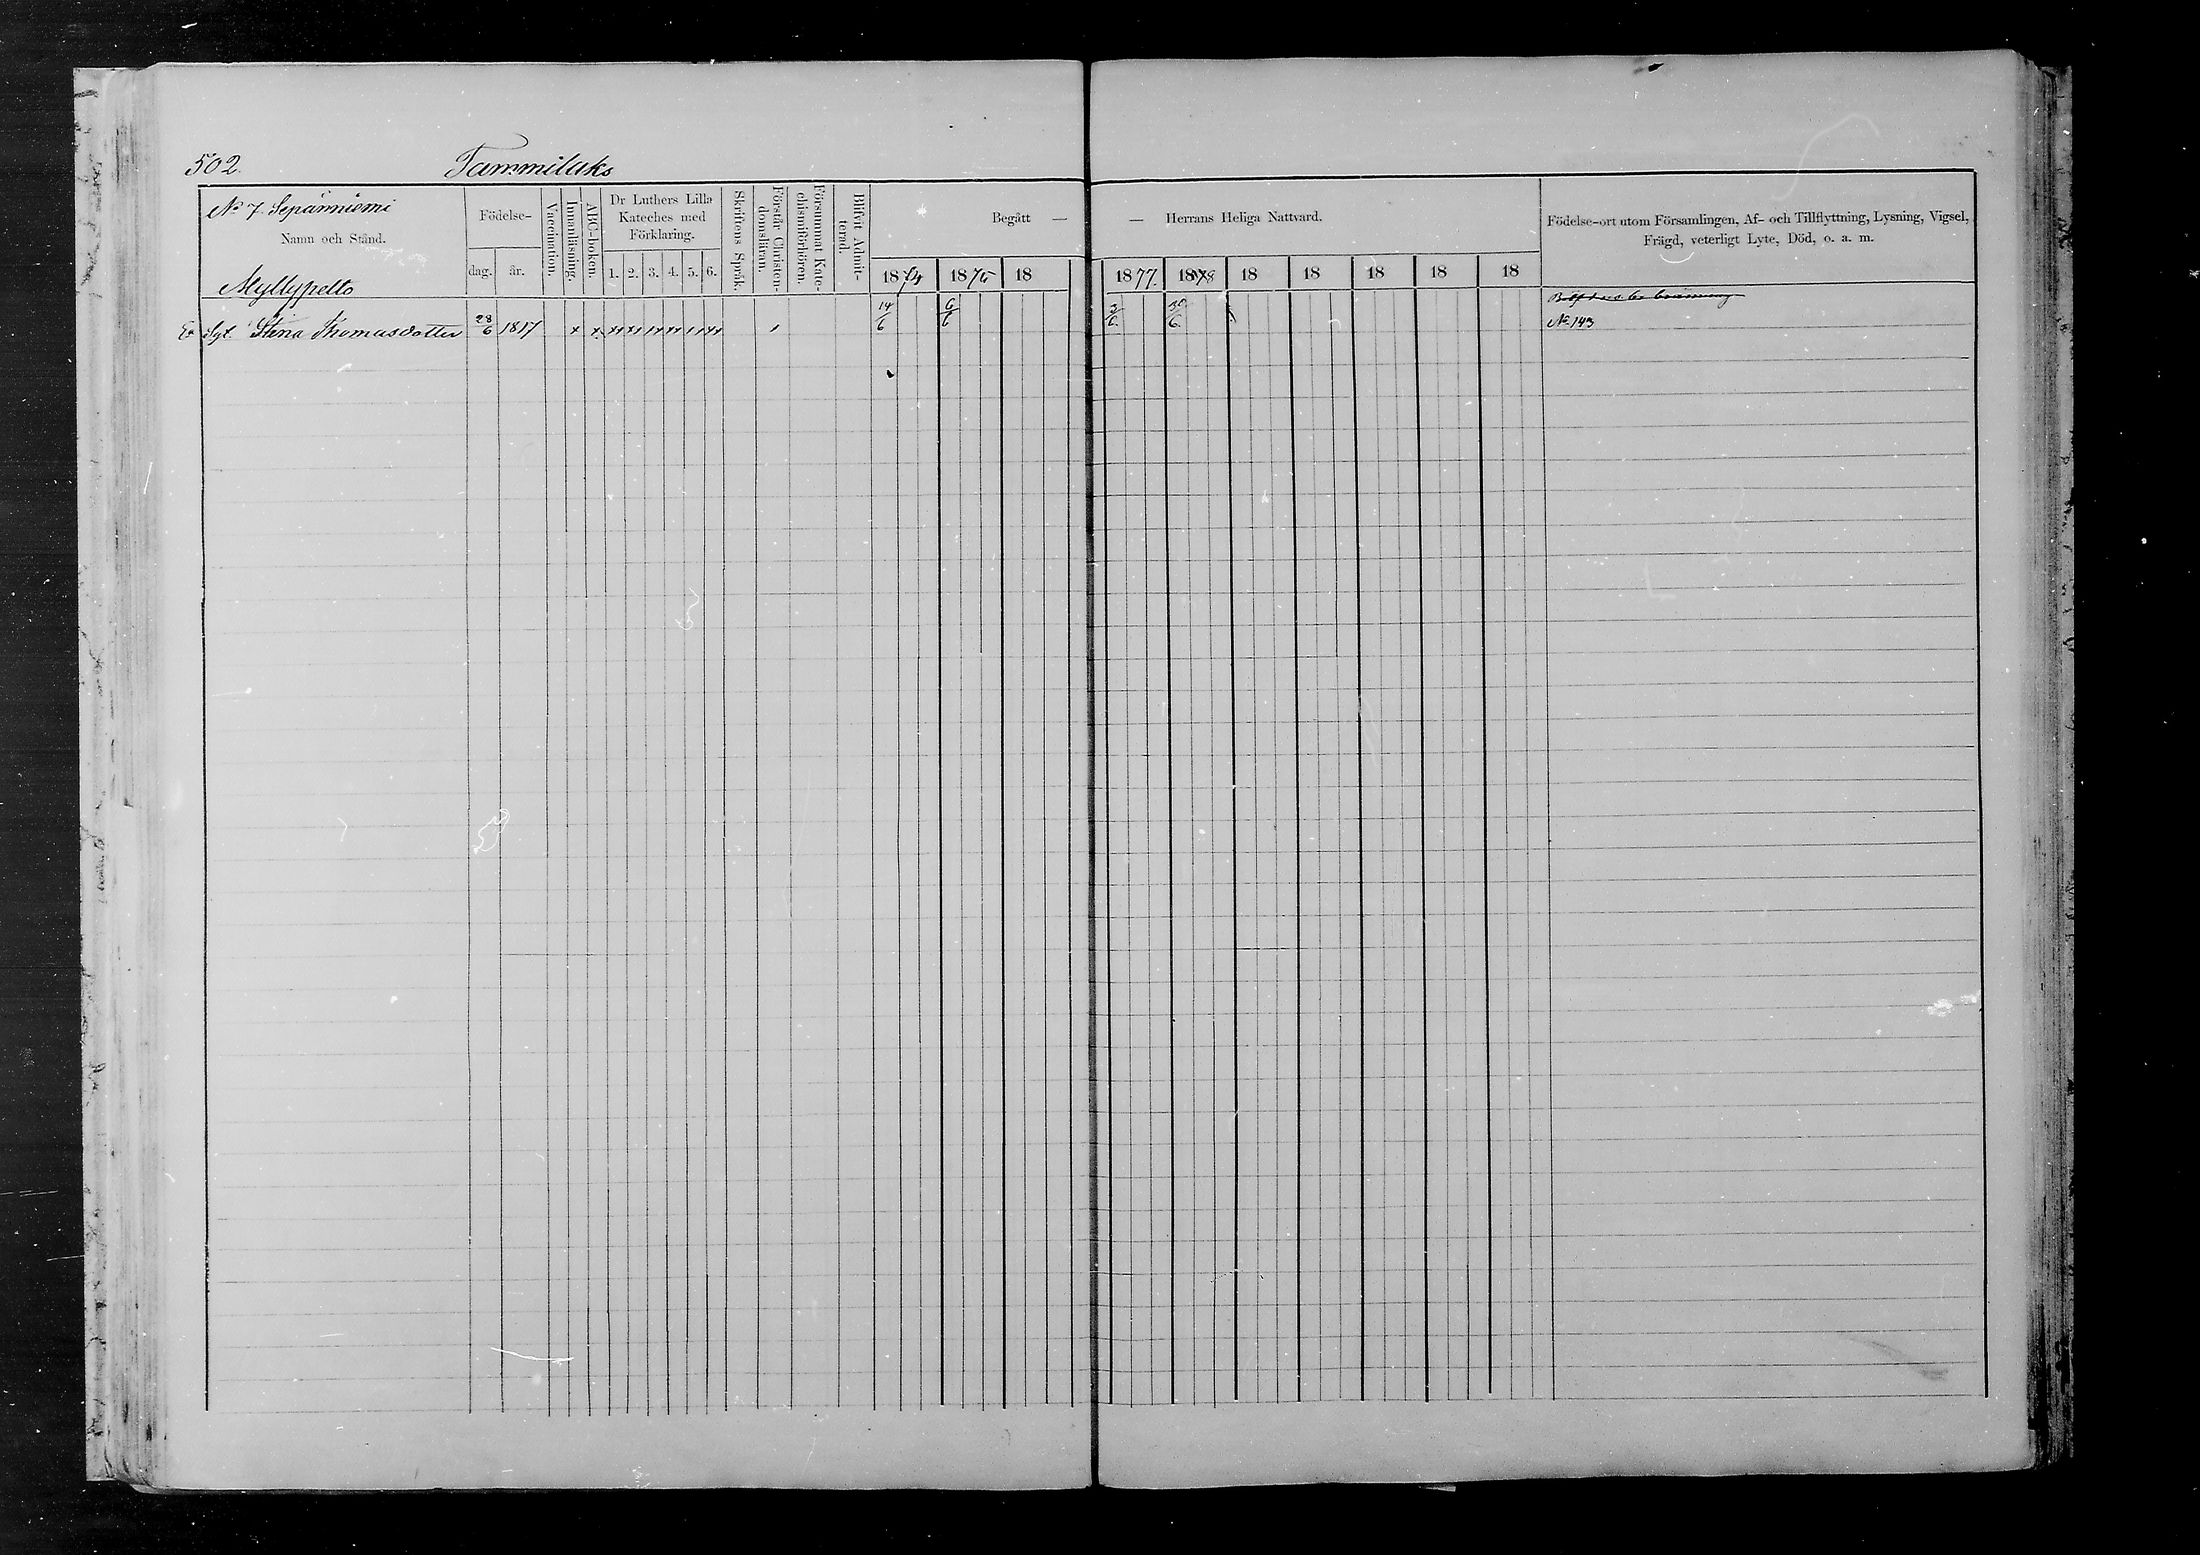 502. Tammiluks
No 7. Sepänniemi
Namn och Stånd.
Myllypelto
Födelse-
dag. år.
Vaccination.
Innanläsning.
ABC-boken.
Dr Luthers Lilla
Kateches med
Förklaring.
1. 2. 3. 4. 5. 6.
Skriftens Språk.
Förstår Christen-
domsläran.
Försummat Kate-
chismiförhören.
Blifvit Admit-
terad.
Begått — — Herrans Heliga Nattvard.
1874 1875 18 1877. 1878 18 18 18 18 18
Födelse-ort utom Församlingen, Af- och Tillflyttning, Lysning, Vigsel,
Frägd, veterligt Lyte, Död, o. a. m.
Stina Thomasdotter 28/6 1817 14/6 6/6 3/6 30/6 No 143